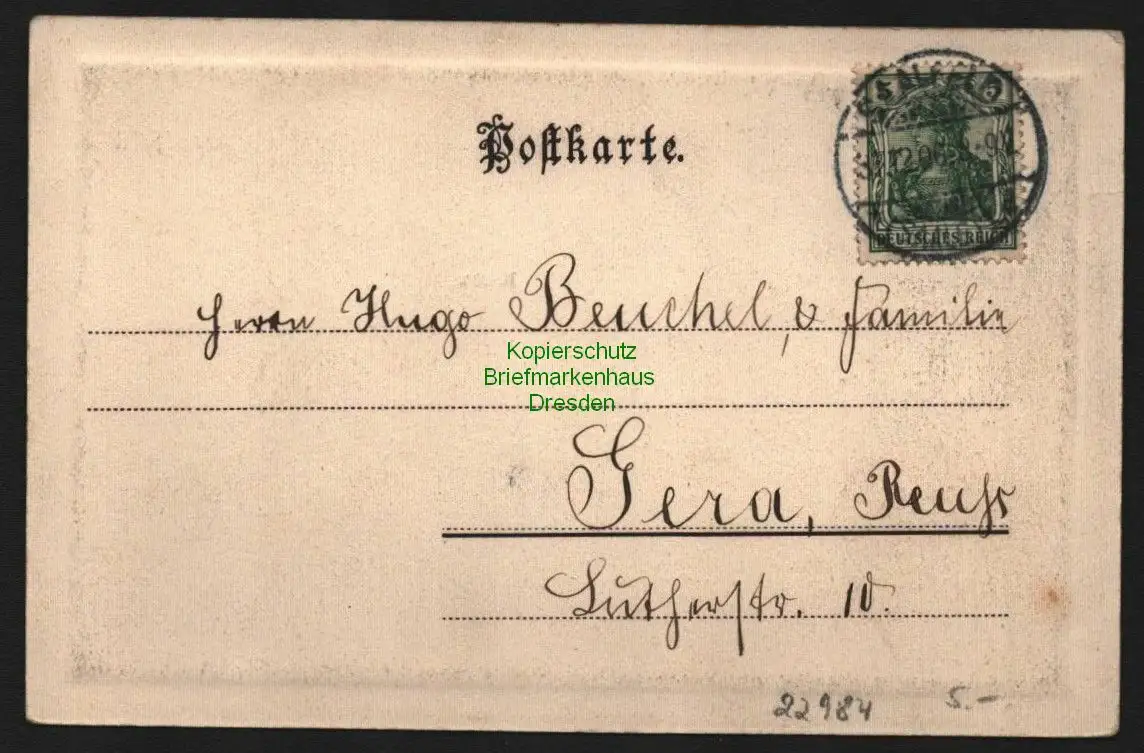 Postkarte.
5 5
DEUTSCHES REICH
Herrn Hugo Beuchel, & Familie
Kopierschutz
Briefmarkenhaus
Dresden
Gera, Reuss
Lutherstr. 10.
22984 5.-